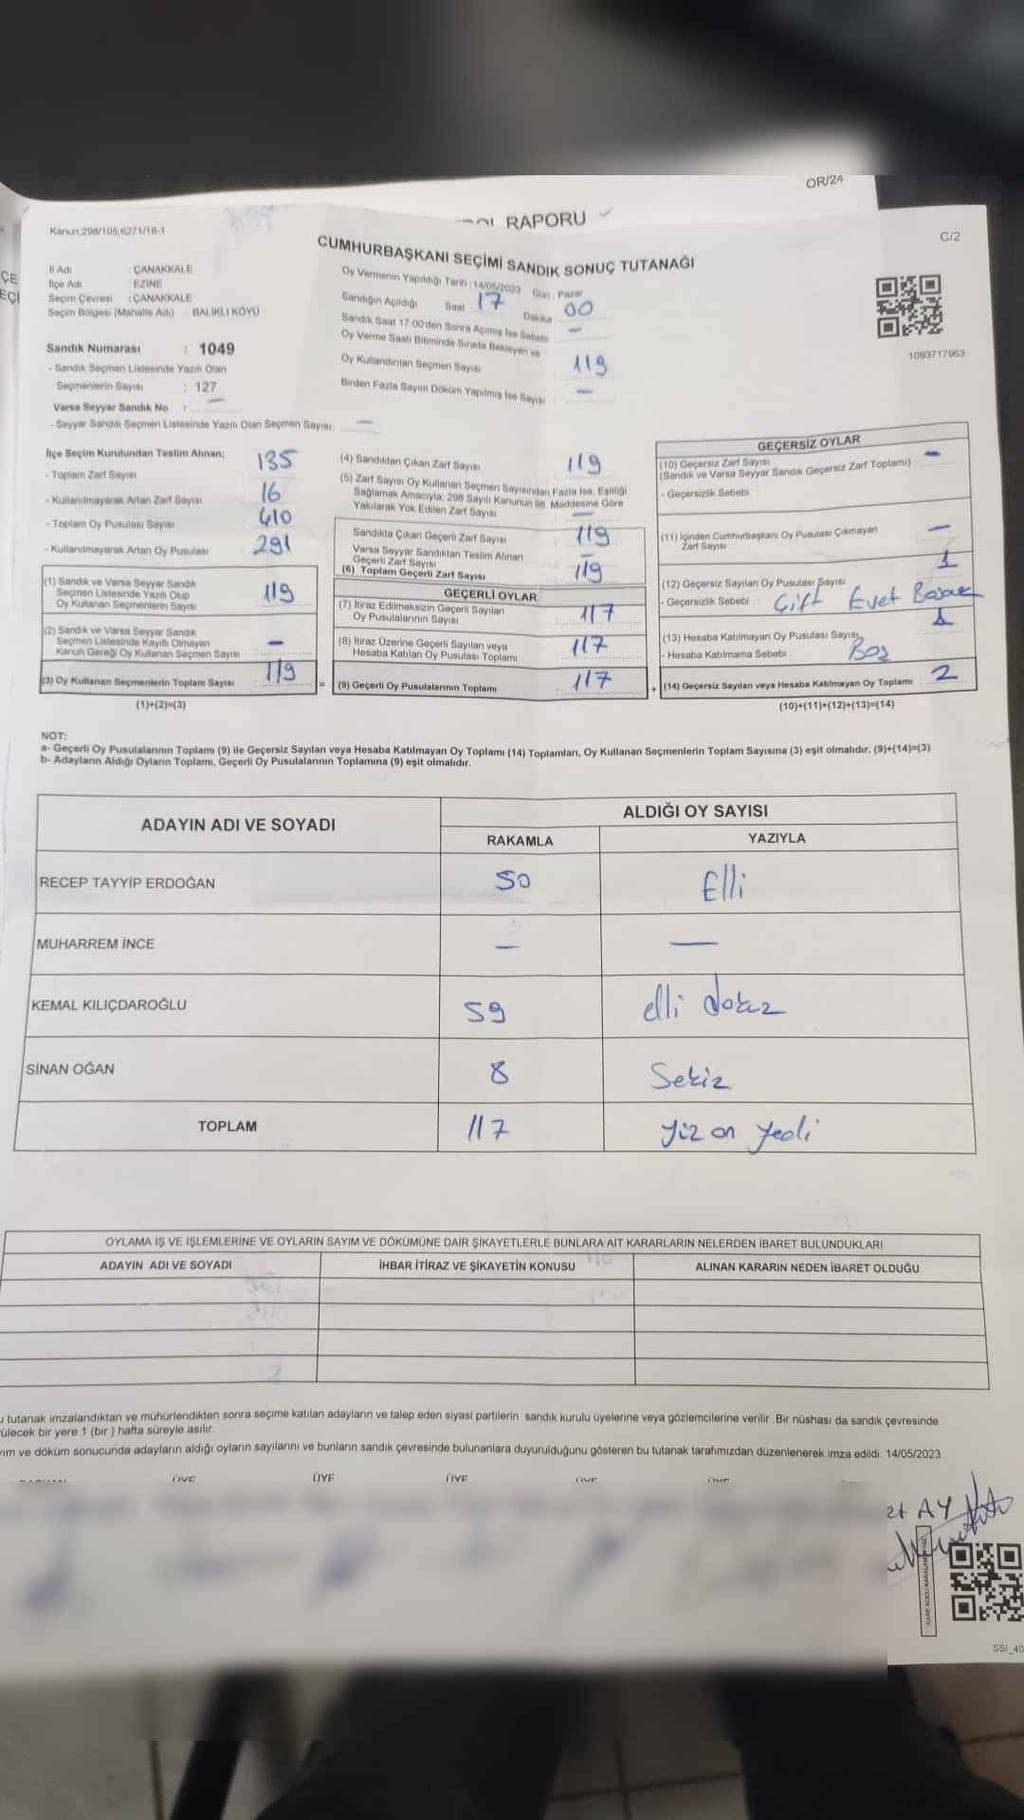 OR/24
RAPORU
Kanun:298/105,6271/18-1
C/2
CUMHURBAŞKANI SEÇİMİ SANDIK SONUÇ TUTANAĞI
İl Adı : ÇANAKKALE
İlçe Adı : EZİNE
Seçim Çevresi : ÇANAKKALE
Seçim Bölgesi (Mahalle Adı) : BALIKLI KÖYÜ
Sandık Numarası : 1049
- Sandık Seçmen Listesinde Yazılı Olan
Seçmenlerin Sayısı : 127
Varsa Seyyar Sandık No : —
- Seyyar Sandık Seçmen Listesinde Yazılı Olan Seçmen Sayısı —
Oy Vermenin Yapıldığı Tarih : 14/05/2023 Gün : Pazar
Sandığın Açıldığı Saat 17 Dakika 00
Sandık Saat 17:00'den Sonra Açılmış İse Sebebi —
Oy Verme Saati Bitiminde Sırada Bekleyen ve
Oy Kullandırılan Seçmen Sayısı 119
Birden Fazla Sayım Döküm Yapılmış İse Sayısı —
1093717963
İlçe Seçim Kurulundan Teslim Alınan;
- Toplam Zarf Sayısı 135
- Kullanılmayarak Artan Zarf Sayısı 16
- Toplam Oy Pusulası Sayısı 410
- Kullanılmayarak Artan Oy Pusulası 291
(1) Sandık ve Varsa Seyyar Sandık
Seçmen Listesinde Yazılı Olup
Oy Kullanan Seçmenlerin Sayısı 119
(2) Sandık ve Varsa Seyyar Sandık
Seçmen Listesinde Kayıtlı Olmayan
Kanun Gereği Oy Kullanan Seçmen Sayısı —
(3) Oy Kullanan Seçmenlerin Toplam Sayısı 119
(1)+(2)=(3)
(4) Sandıktan Çıkan Zarf Sayısı 119
(5) Zarf Sayısı Oy Kullanan Seçmen Sayısından Fazla İse, Eşitliği
Sağlamak Amacıyla; 298 Sayılı Kanunun 98. Maddesine Göre
Yakılarak Yok Edilen Zarf Sayısı —
Sandıkta Çıkan Geçerli Zarf Sayısı 119
Varsa Seyyar Sandıktan Teslim Alınan
Geçerli Zarf Sayısı —
(6) Toplam Geçerli Zarf Sayısı 119
GEÇERLİ OYLAR
(7) İtiraz Edilmeksizin Geçerli Sayılan
Oy Pusulalarının Sayısı 117
(8) İtiraz Üzerine Geçerli Sayılan veya
Hesaba Katılan Oy Pusulası Toplamı 117
= (9) Geçerli Oy Pusulalarının Toplamı 117 +
GEÇERSİZ OYLAR
(10) Geçersiz Zarf Sayısı —
(Sandık ve Varsa Seyyar Sandık Geçersiz Zarf Toplamı)
- Geçersizlik Sebebi
(11) İçinden Cumhurbaşkanı Oy Pusulası Çıkmayan
Zarf Sayısı —
(12) Geçersiz Sayılan Oy Pusulası Sayısı 1
- Geçersizlik Sebebi : Çift Evet
(13) Hesaba Katılmayan Oy Pusulası Sayısı 1
- Hesaba Katılmama Sebebi Boş
(14) Geçersiz Sayılan veya Hesaba Katılmayan Oy Toplamı 2
(10)+(11)+(12)+(13)=(14)
NOT:
a- Geçerli Oy Pusulalarının Toplamı (9) ile Geçersiz Sayılan veya Hesaba Katılmayan Oy Toplamı (14) Toplamları, Oy Kullanan Seçmenlerin Toplam Sayısına (3) eşit olmalıdır. (9)+(14)=(3)
b- Adayların Aldığı Oyların Toplamı, Geçerli Oy Pusulalarının Toplamına (9) eşit olmalıdır.
ADAYIN ADI VE SOYADI ALDIĞI OY SAYISI
RAKAMLA YAZIYLA
RECEP TAYYİP ERDOĞAN 50 Elli
MUHARREM İNCE — —
KEMAL KILIÇDAROĞLU 59 elli dokuz
SİNAN OĞAN 8 Sekiz
TOPLAM 117 Yüz on yedi
OYLAMA İŞ VE İŞLEMLERİNE VE OYLARIN SAYIM VE DÖKÜMÜNE DAİR ŞİKAYETLERLE BUNLARA AİT KARARLARIN NELERDEN İBARET BULUNDUKLARI
ADAYIN ADI VE SOYADI İHBAR İTİRAZ VE ŞİKAYETİN KONUSU ALINAN KARARIN NEDEN İBARET OLDUĞU
tutanak imzalandıktan ve mühürlendikten sonra seçime katılan adayların ve talep eden siyasi partilerin sandık kurulu üyelerine veya gözlemcilerine verilir. Bir nüshası da sandık çevresinde
ülecek bir yere 1 (bir) hafta süreyle asılır.
ım ve döküm sonucunda adayların aldığı oyların sayılarını ve bunların sandık çevresinde bulunanlara duyurulduğunu gösteren bu tutanak tarafımızdan düzenlenerek imza edildi. 14/05/2023
ÜYE ÜYE ÜYE ÜYE ÜYE
et AY
SSI_40